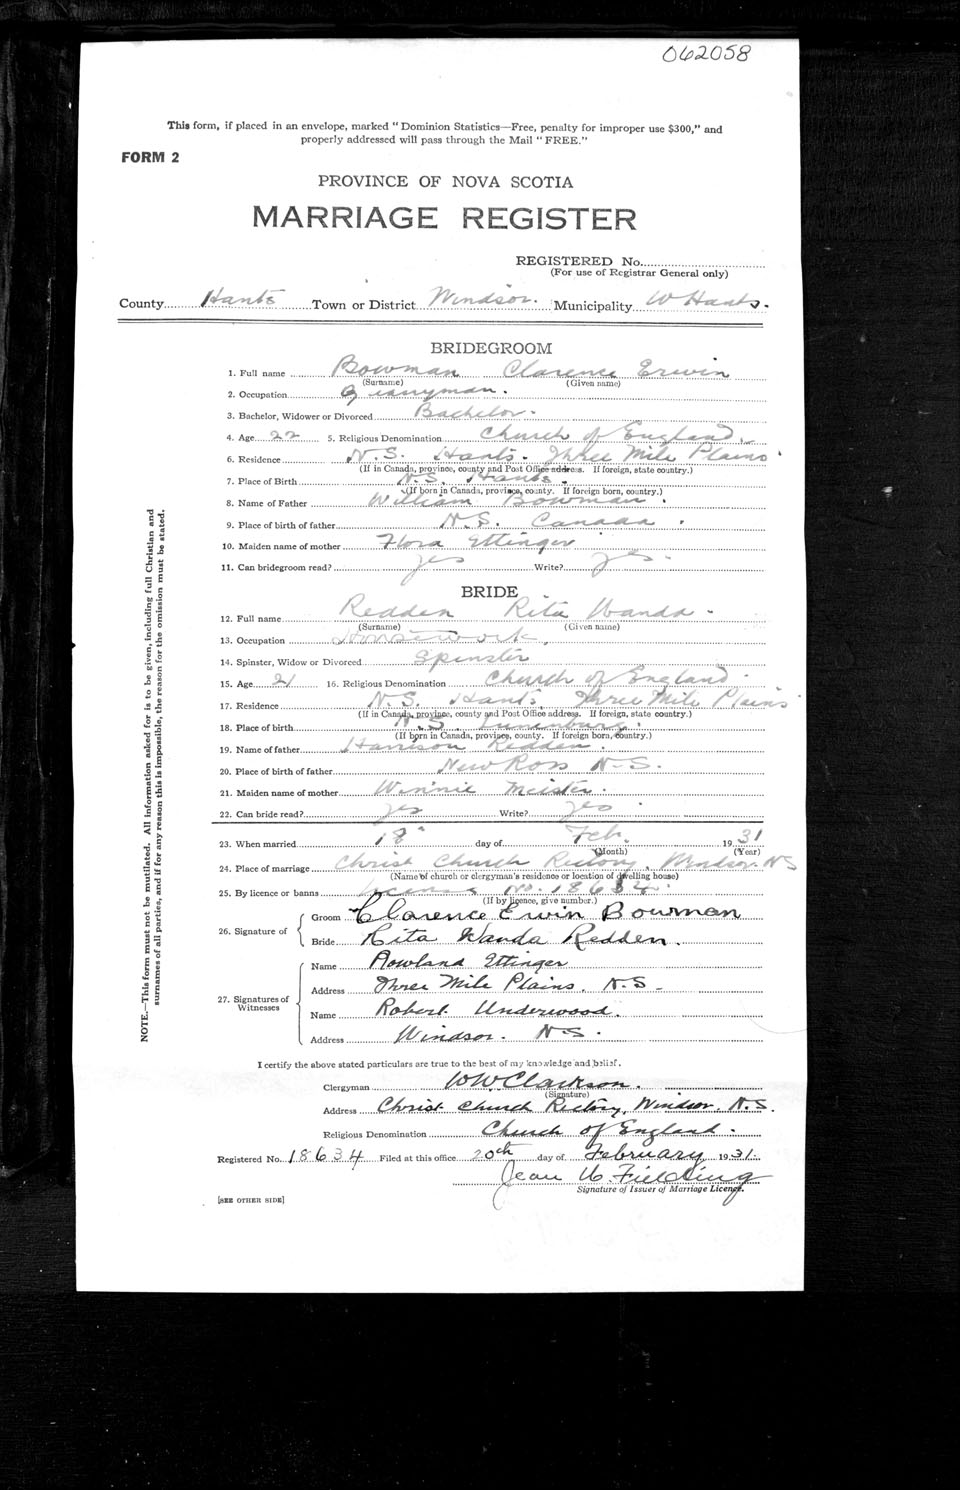 062058
This form, if placed in an envelope, marked "Dominion Statistics—Free, penalty for improper use $300," and
properly addressed will pass through the Mail "FREE."
FORM 2
PROVINCE OF NOVA SCOTIA
MARRIAGE REGISTER
REGISTERED No.
(For use of Registrar General only)
County Hants Town or District Windsor. Municipality W Hants.
BRIDEGROOM
1. Full name Bowman Clarence Erwin
(Surname) (Given name)
2. Occupation Quarryman.
3. Bachelor, Widower or Divorced Bachelor.
4. Age 22 5. Religious Denomination Church of England.
6. Residence N.S. Hants. Three Mile Plains
(If in Canada, province, county and Post Office address. If foreign, state country.)
7. Place of Birth N.S. Hants.
(If born in Canada, province, county. If foreign born, country.)
8. Name of Father William Bowman.
9. Place of birth of father N.S. Canada.
10. Maiden name of mother Flora Ettinger
11. Can bridegroom read? yes Write? yes.
BRIDE
12. Full name Redden Rita Wanda.
(Surname) (Given name)
13. Occupation Housework.
14. Spinster, Widow or Divorced Spinster
15. Age 21 16. Religious Denomination Church of England.
17. Residence N.S. Hants, Three Mile Plains
(If in Canada, province, county and Post Office address. If foreign, state country.)
18. Place of birth N.S. Lunenburg.
(If born in Canada, province, county. If foreign born, country.)
19. Name of father Harrison Redden.
20. Place of birth of father New Ross N.S.
21. Maiden name of mother Winnie Meister.
22. Can bride read? yes Write? yes
23. When married 18 day of Feb. 1931
(Month) (Year)
24. Place of marriage Christ Church Rectory, Windsor. NS
(Name of church or clergyman's residence or location of dwelling house)
25. By licence or banns License No. 18634.
(If by licence, give number.)
26. Signature of
Groom Clarence Erwin Bowman
Bride Rita Wanda Redden.
27. Signatures of Witnesses
Name Rowland Ettinger
Address Three Mile Plains. N.S.
Name Robert Underwood.
Address Windsor. N.S.
I certify the above stated particulars are true to the best of my knowledge and belief.
Clergyman WW Clarkson.
(Signature)
Address Christ Church Rectory, Windsor. N.S.
Religious Denomination Church of England.
Registered No. 18634 Filed at this office 20th day of February 1931
Jean U. Fielding
Signature of Issuer of Marriage Licence.
[SEE OTHER SIDE]
NOTE.—This form must not be mutilated. All information asked for is to be given, including full Christian and
surnames of all parties, and if for any reason this is impossible, the reason for the omission must be stated.